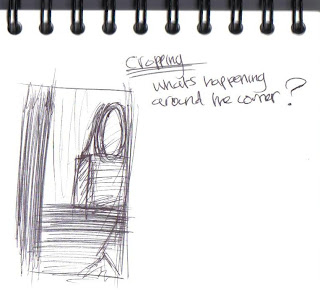 Cropping
whats happening
around the corner?